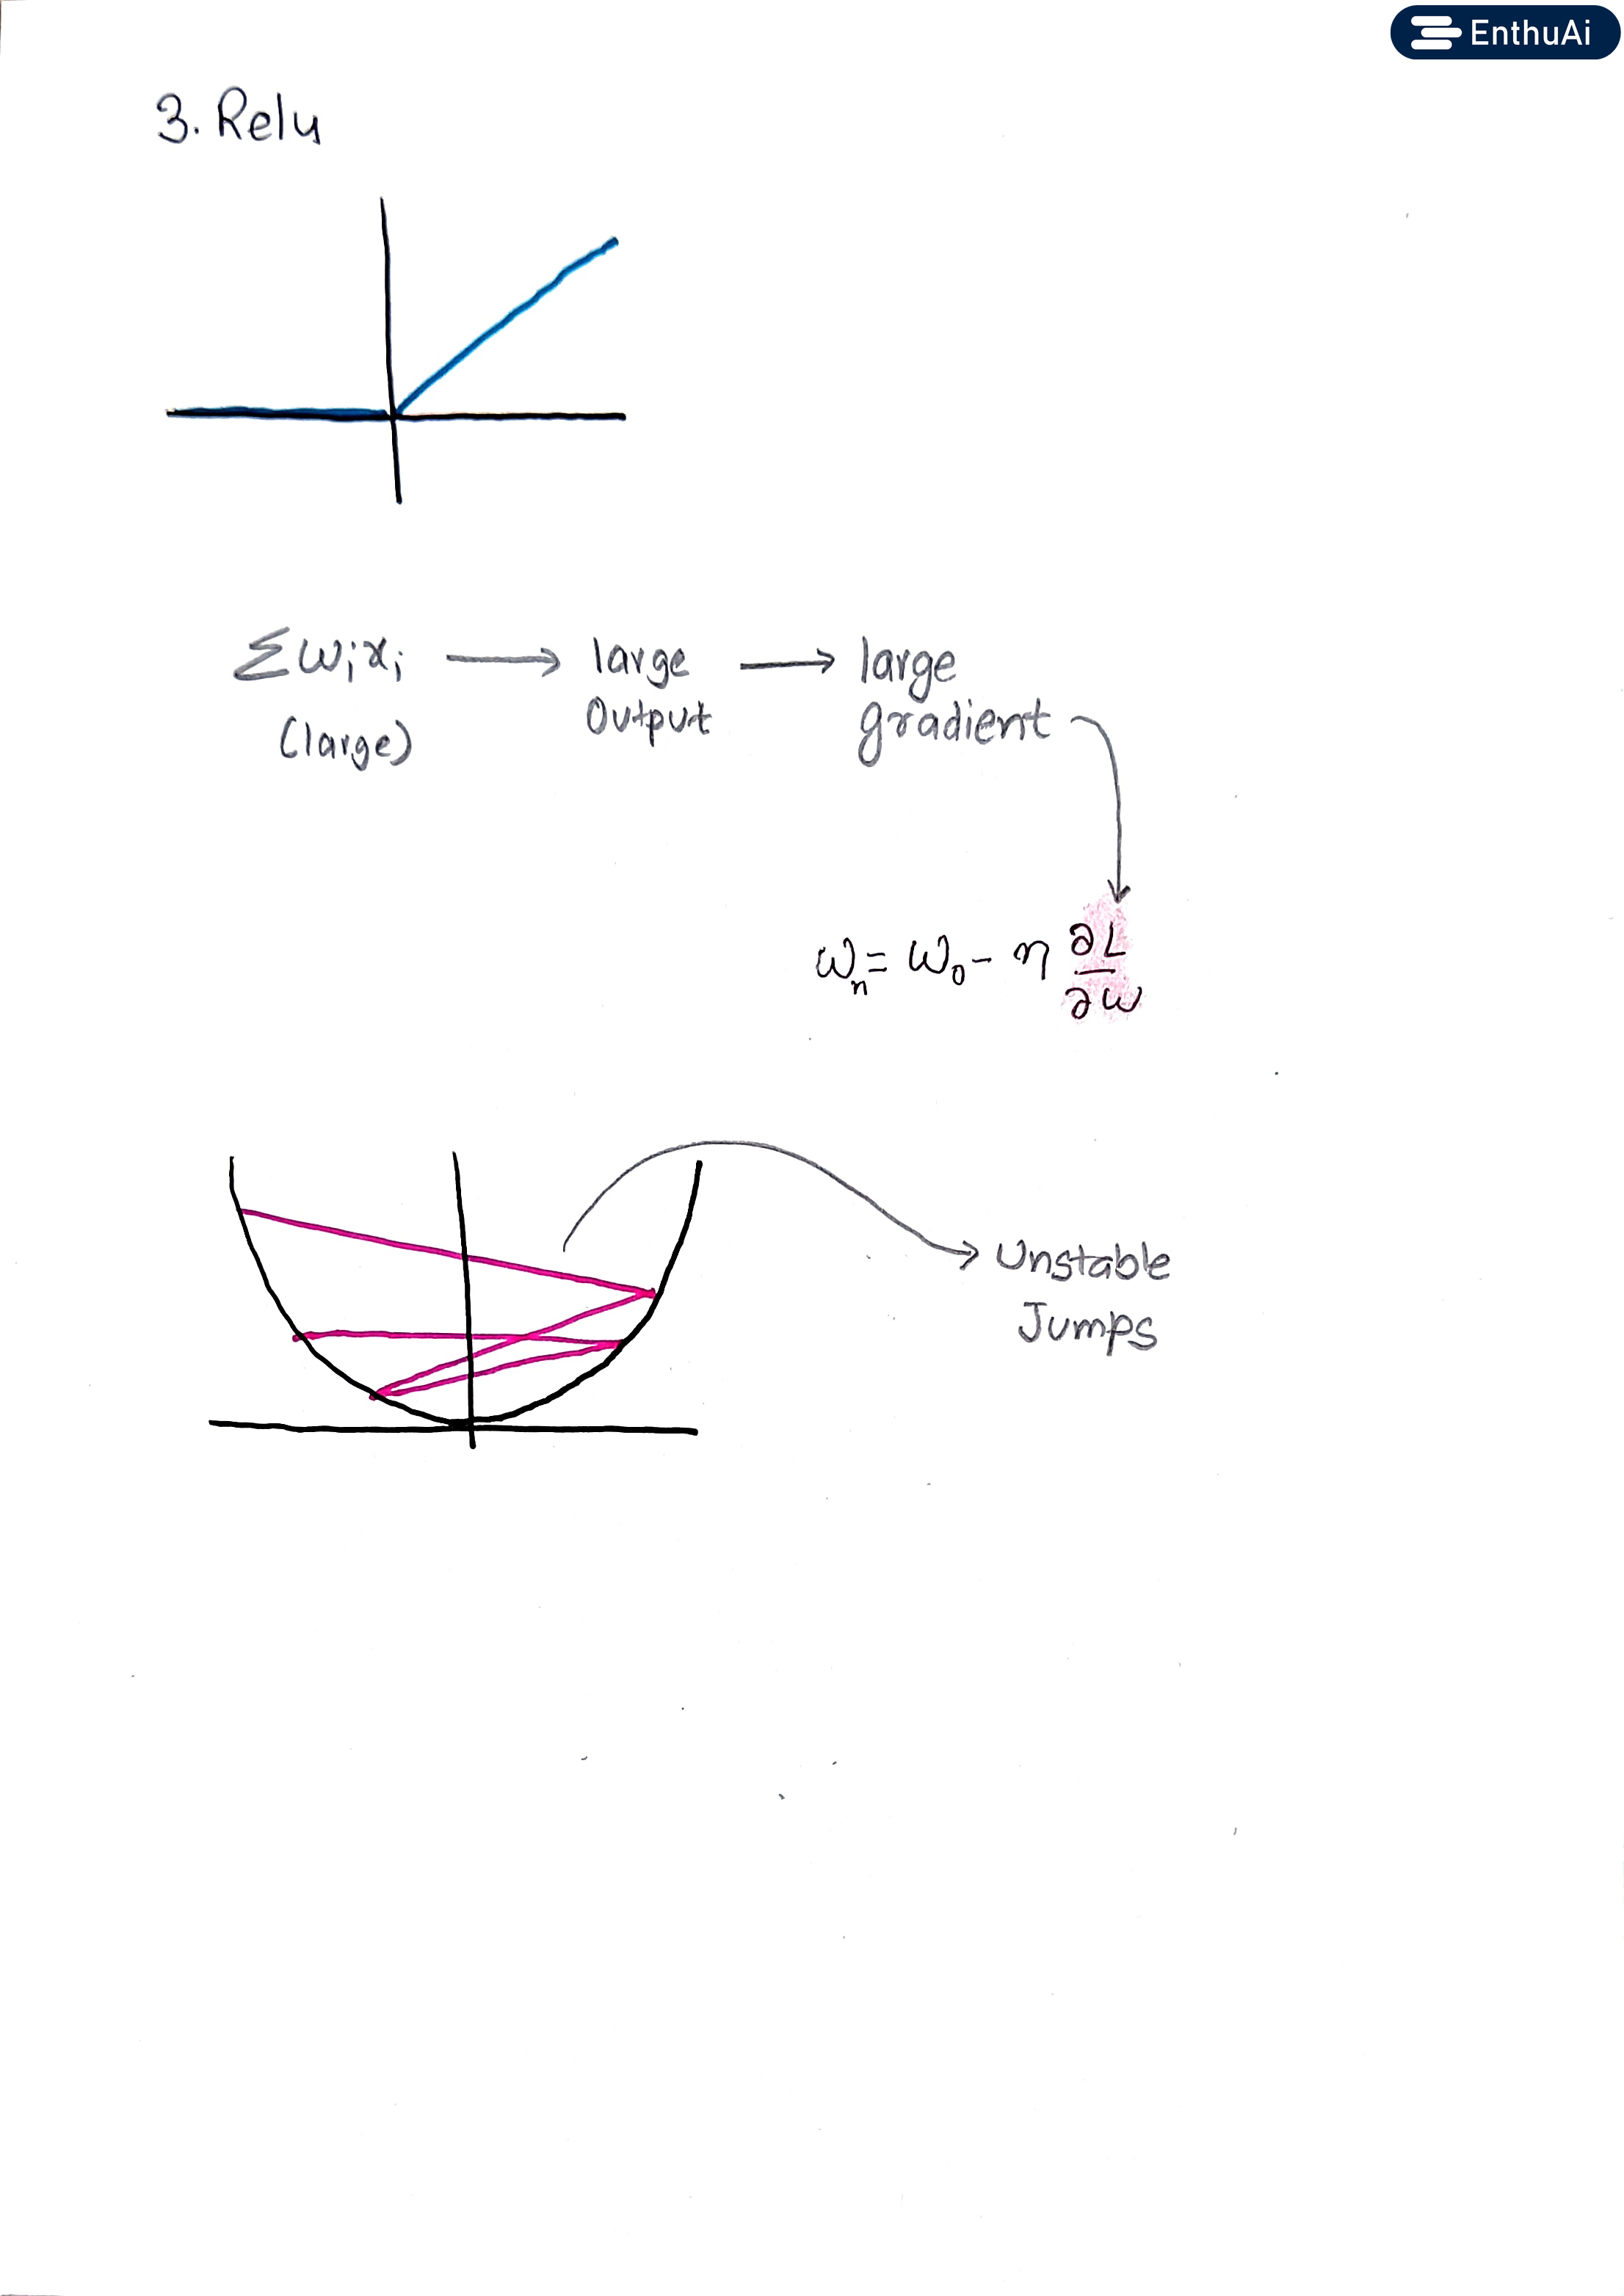 EnthuAi
3. Relu
Σwᵢxᵢ → large → large
(large) Output gradient
wₙ = w₀ - η ∂L/∂w
Unstable
Jumps